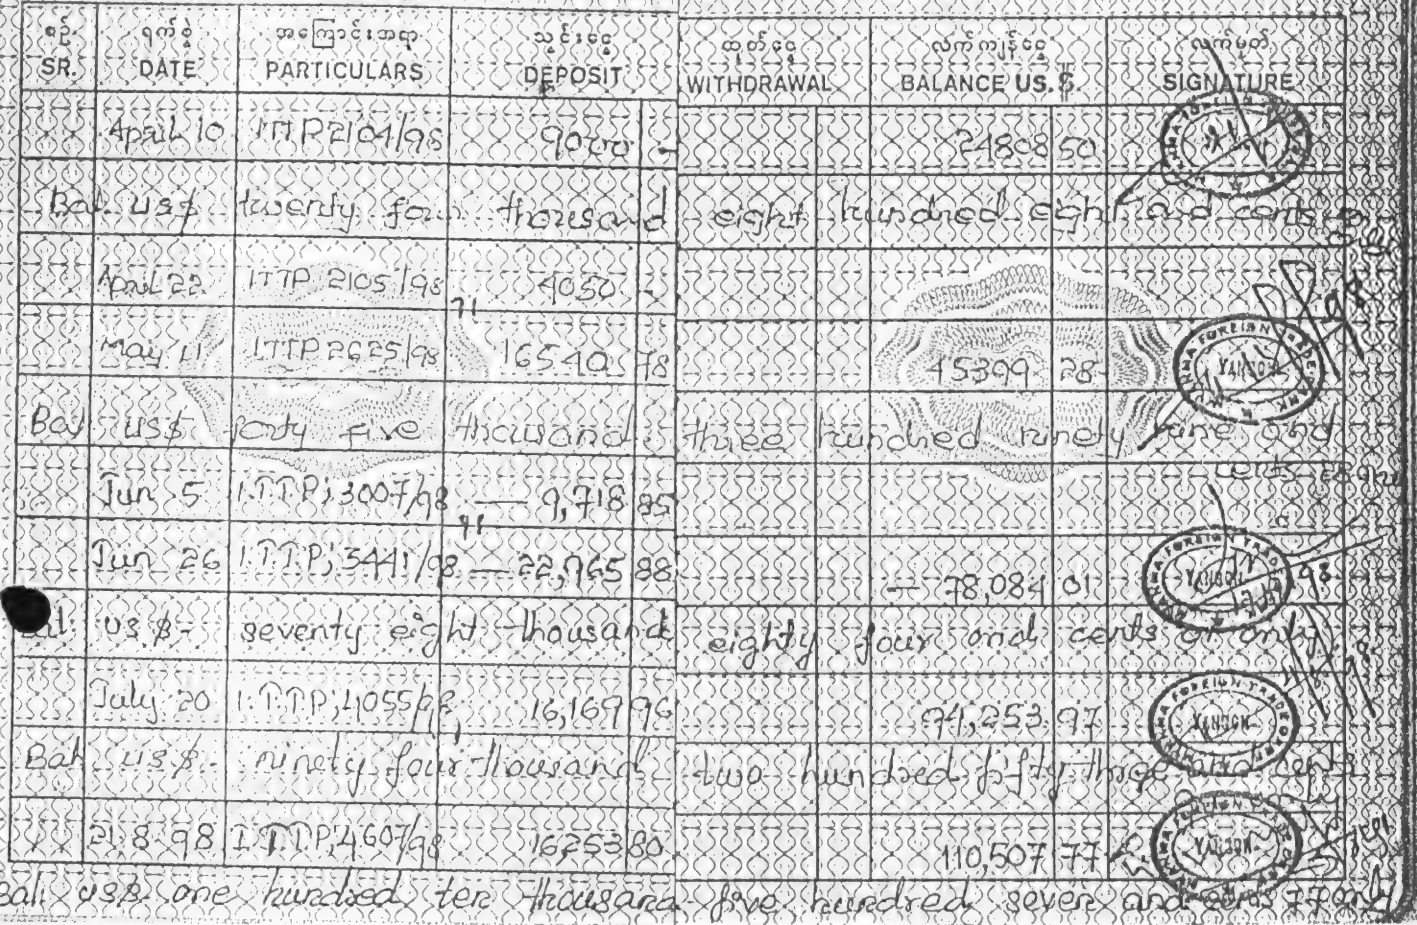 စဉ် ရက်စွဲ အကြောင်းအရာ သွင်းငွေ ထုတ်ငွေ လက်ကျန်ငွေ လက်မှတ်
SR. DATE PARTICULARS DEPOSIT WITHDRAWAL BALANCE US.$. SIGNATURE
April 10 ITTP2104/98 9000 - 24808 50
Bal US$ twenty four thousand eight hundred eight and cents
April 22 ITTP 2105/98 4050 -
May 11 ITTP 2625/98 16540 78 45399 28
YANGON
Bal US$ forty five thousand three hundred ninety nine and
cents 28 only
Jun 5 I.T.T.P; 3007/98 — 9,718 85
Jun 26 I.T.T.P; 3441/98 — 22,965 88 — 78,084 01
YANGON
Bal: US $- seventy eight thousand eighty four and cents 01 only
July 20 I.T.T.P; 4055/98 16,169 96 94,253 97
YANGON
Bal: US$- ninety four thousand two hundred fifty three and cents
21 8 98 I.T.T.P; 4607/98 16253 80 110,507 77
YANGON
Bal: US$ one hundred ten thousand five hundred seven and cents 77 only